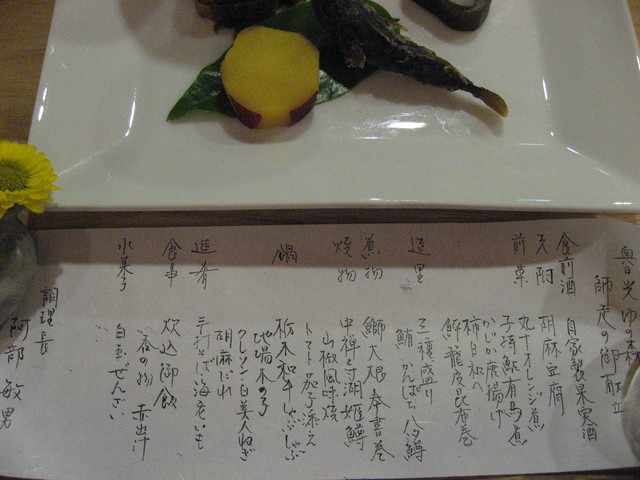 魯光ゆの森
師走の御献立
食前酒 自家製果実酒
先附 胡麻豆腐
前菜 丸十オレンジ煮
子持鮎有馬煮
かじか唐揚げ
柿日和へ
鮭龍皮昆布巻
造里 三種盛り
鮪 かんぱち 八汐鱒
煮物 鰤大根奉書巻
焼物 中禅寺湖姫鱒
山椒風味焼
トマト茄子添え
鍋 栃木和牛しゃぶしゃぶ
地場木の子
クレソン・白美人ねぎ
胡麻だれ
進肴 三河そば海老いも
食事 炊込御飯
香の物 赤出汁
水菓子 白玉ぜんざい
調理長
阿部敏男